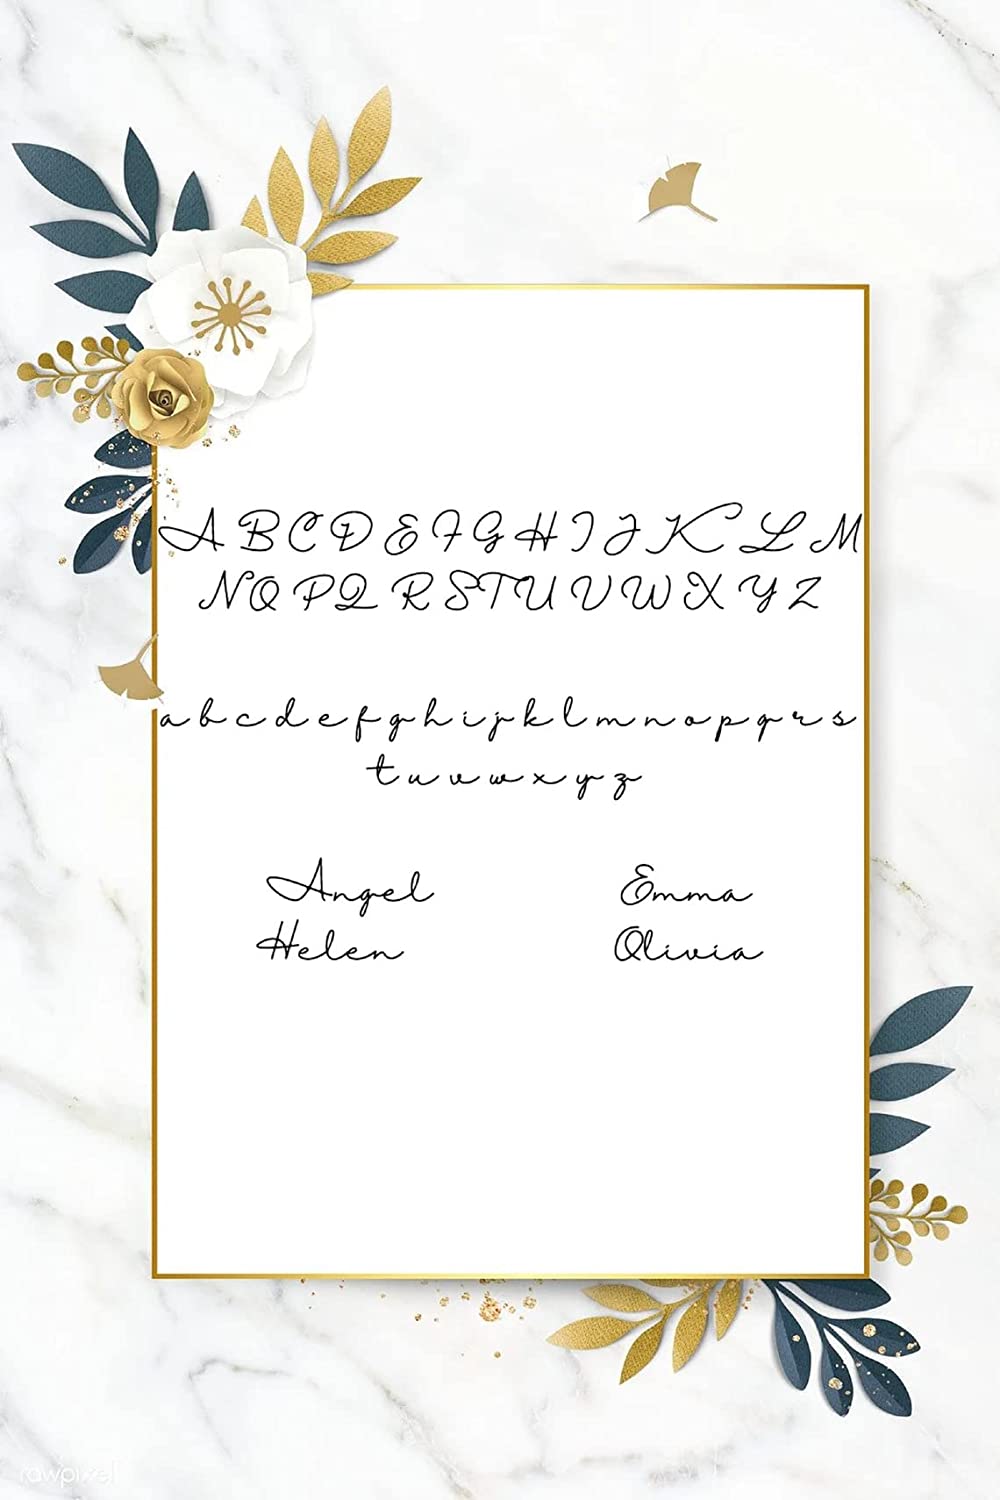 A B C D E F G H I J K L M
N O P Q R S T U V W X Y Z
a b c d e f g h i j k l m n o p q r s
t u v w x y z
Angel Emma
Helen Olivia
rawpixel